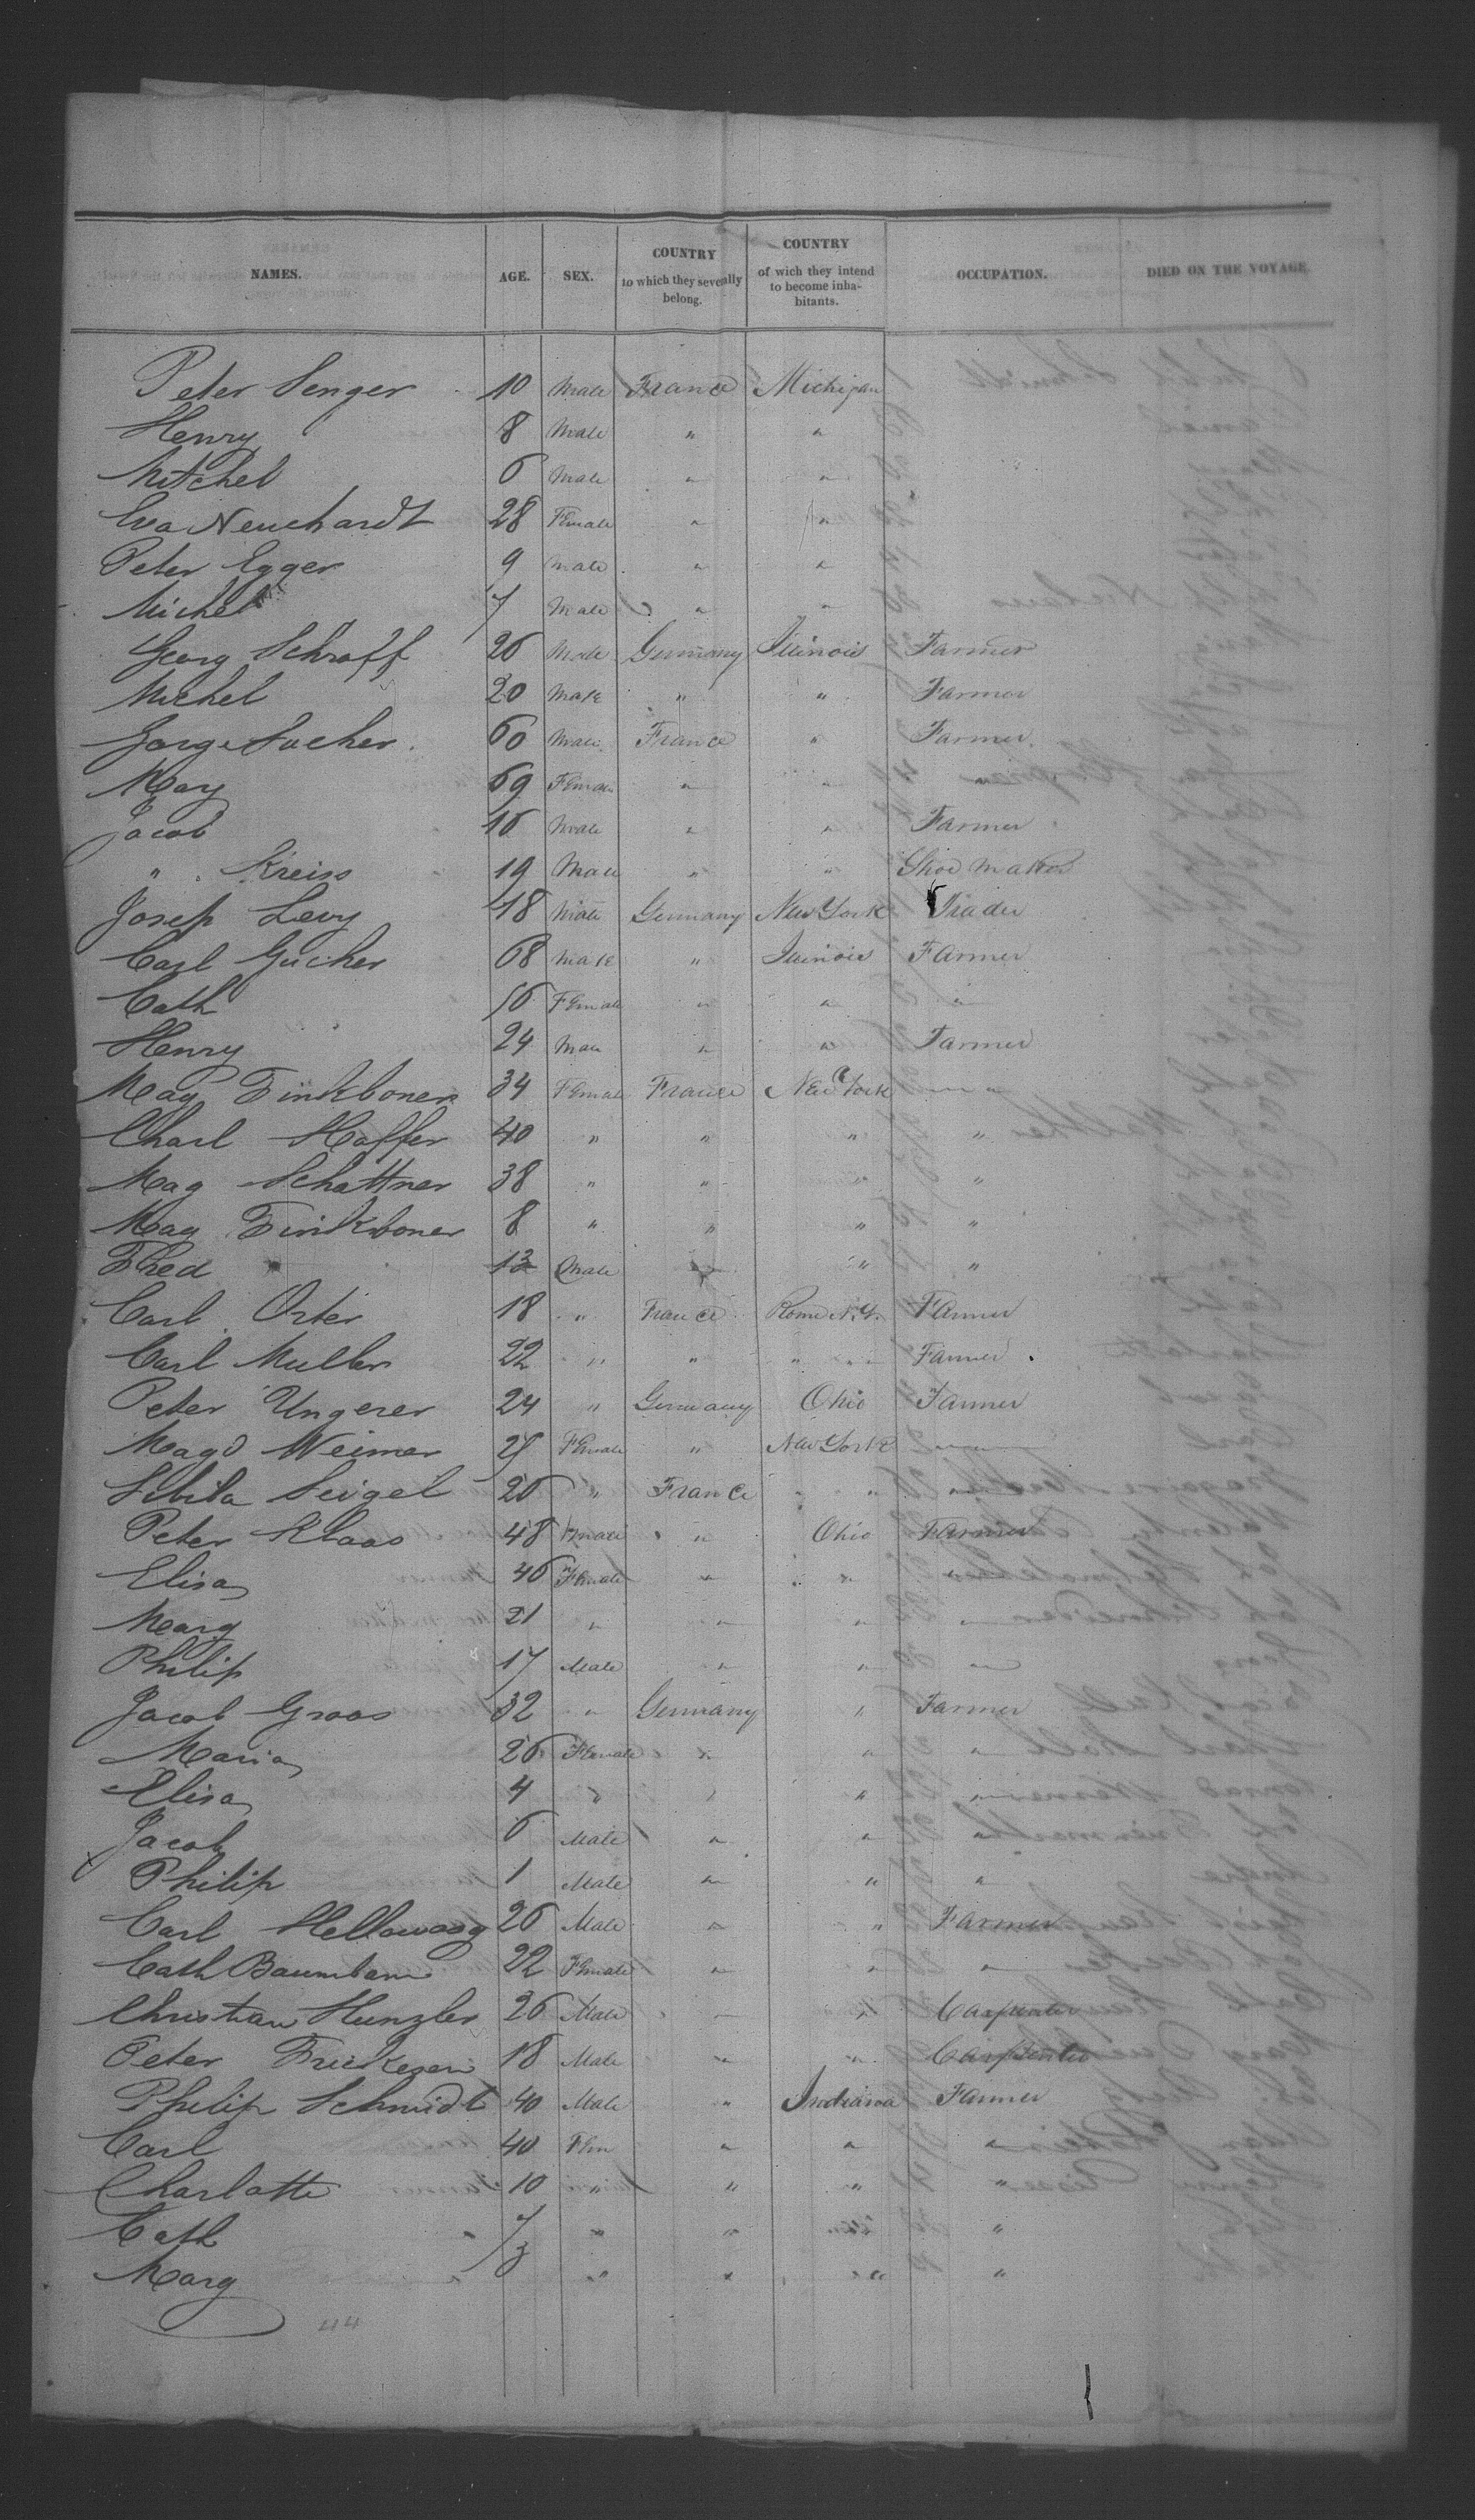 NAMES. AGE. SEX. COUNTRY to which they severally belong. COUNTRY of wich they intend to become inhabitants. OCCUPATION. DIED ON THE VOYAGE.
Peter Senger 10 Male France Michigan
Henry 8 Male " "
Mitchel 6 Male " "
Eva Neuchardt 28 Female " "
Peter Egger 9 Male " "
Michel 7 Male " "
Georg Schraff 26 Male Germany Illinois Farmer
Michel 20 Male " " Farmer
Gorge Sucher 60 Male France " Farmer
Mary 69 Female " " "
Jacob 16 Male " " Farmer
" Kreiss 19 Male " " Shoe maker
Josep Levy 18 Male Germany New York Trader
Carl Gucher 68 Male " Illinois Farmer
Cath 56 Female " " "
Henry 24 Male " " Farmer
Mag Finkboner 34 Female France New York "
Charl Haffer 40 " " " "
Mag Schattner 38 " " " "
Mag Finkboner 8 " " " "
Fred 13 Male " " "
Carl Oster 18 " France Rome N.Y. Farmer
Carl Muller 22 " " " Farmer
Peter Ungerer 24 " Germany Ohio Farmer
Magd Weimer 25 Female " New York "
Sibila Seigel 26 " France " "
Peter Klaas 48 Male " Ohio Farmer
Elisa 46 Female " " "
Marg 21 " " " "
Philip 17 Male " " "
Jacob Graas 32 " Germany " Farmer
Maria 26 Female " " "
Elisa 4 " " " "
Jacob 6 Male " " "
Philip 1 Male " " "
Carl Hellowaag 26 Male " " Farmer
Cath Baumbam 22 Female " " "
Christian Hunzler 26 Male " " Carpenter
Peter 18 Male " " Carpenter
Philip Schmidt 40 Male " Indiana Farmer
Carl 40 Fem " " "
Charlotte 10 " " " "
Cath 7 " " " "
Marg 3 " " " "
44